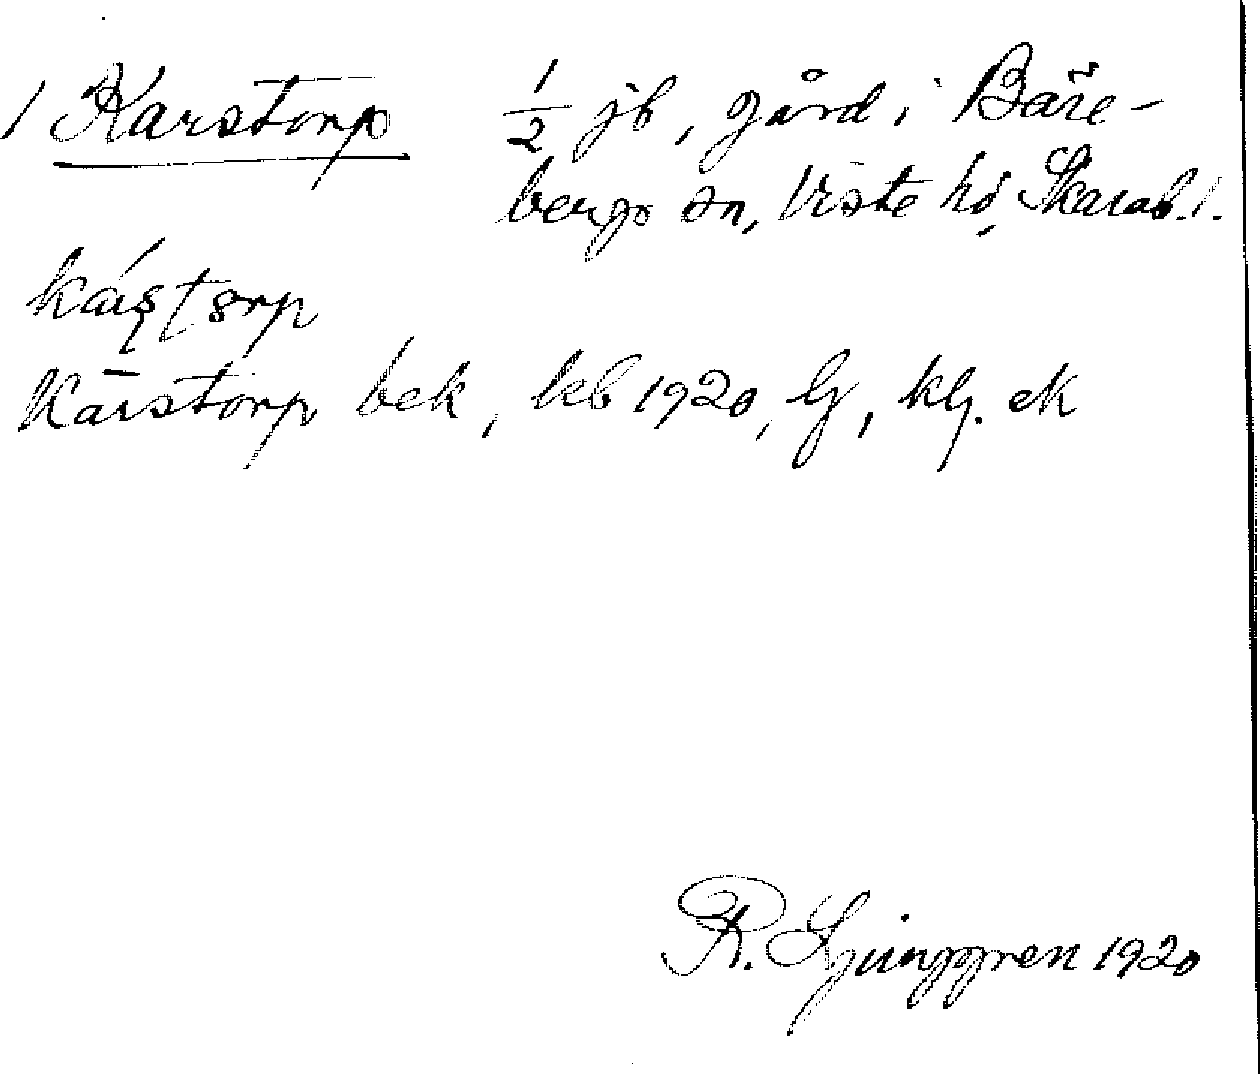 1 Karstorp 1/2 jb, gård i Bäre-
bergs sn, Viste hd, Skarab. l.
Karstorp bek, kb 1920, lj, klj. ek
R. Ljunggren 1920